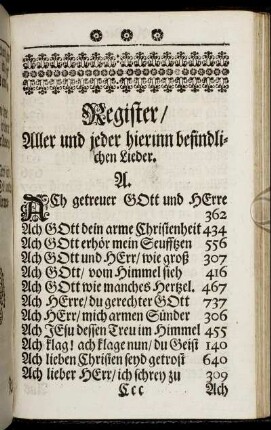 Register/
Aller und jeder hierinn befindli-
chen Lieder.
A.
ACh getreuer GOtt und HErre
362
Ach GOtt dein arme Christenheit 434
Ach GOtt erhör mein Seufftzen 556
Ach GOtt und HErr/ wie groß 307
Ach GOtt/ vom Himmel sich 416
Ach GOtt wie manches Hertzel. 467
Ach HErre/ du gerechter GOtt 737
Ach HErr/ mich armen Sünder 306
Ach JEsu dessen Treu im Himmel 455
Ach klag! ach klage nun/ du Geist 140
Ach lieben Christen seyd getrost 640
Ach lieber HErr/ ich schrey zu 309
Ccc Ach